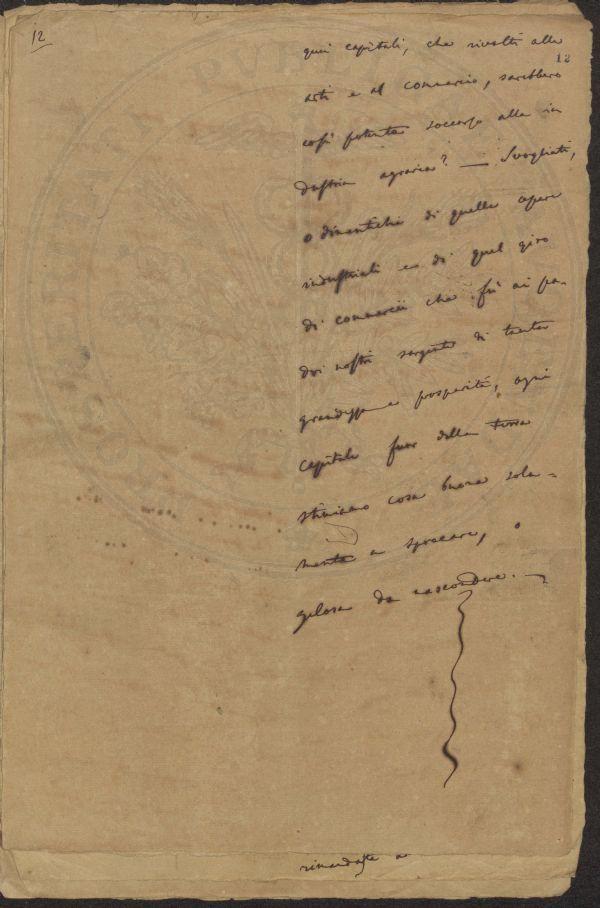 12
12
quei capitali, che rivolti alle
arti e al commercio, sarebbero
così potente soccorso alla in
dustria agraria? — Svogliati,
o dimentichi di quelle opere
industriali e di quel giro
di commercii che fu ai pa-
dri nostri sorgente di tanta
grandezza e prosperità, ogni
capitale fuor della terra
stimiamo cosa buona sola-
mente a sprecare, o
gelosa da nascondere. —